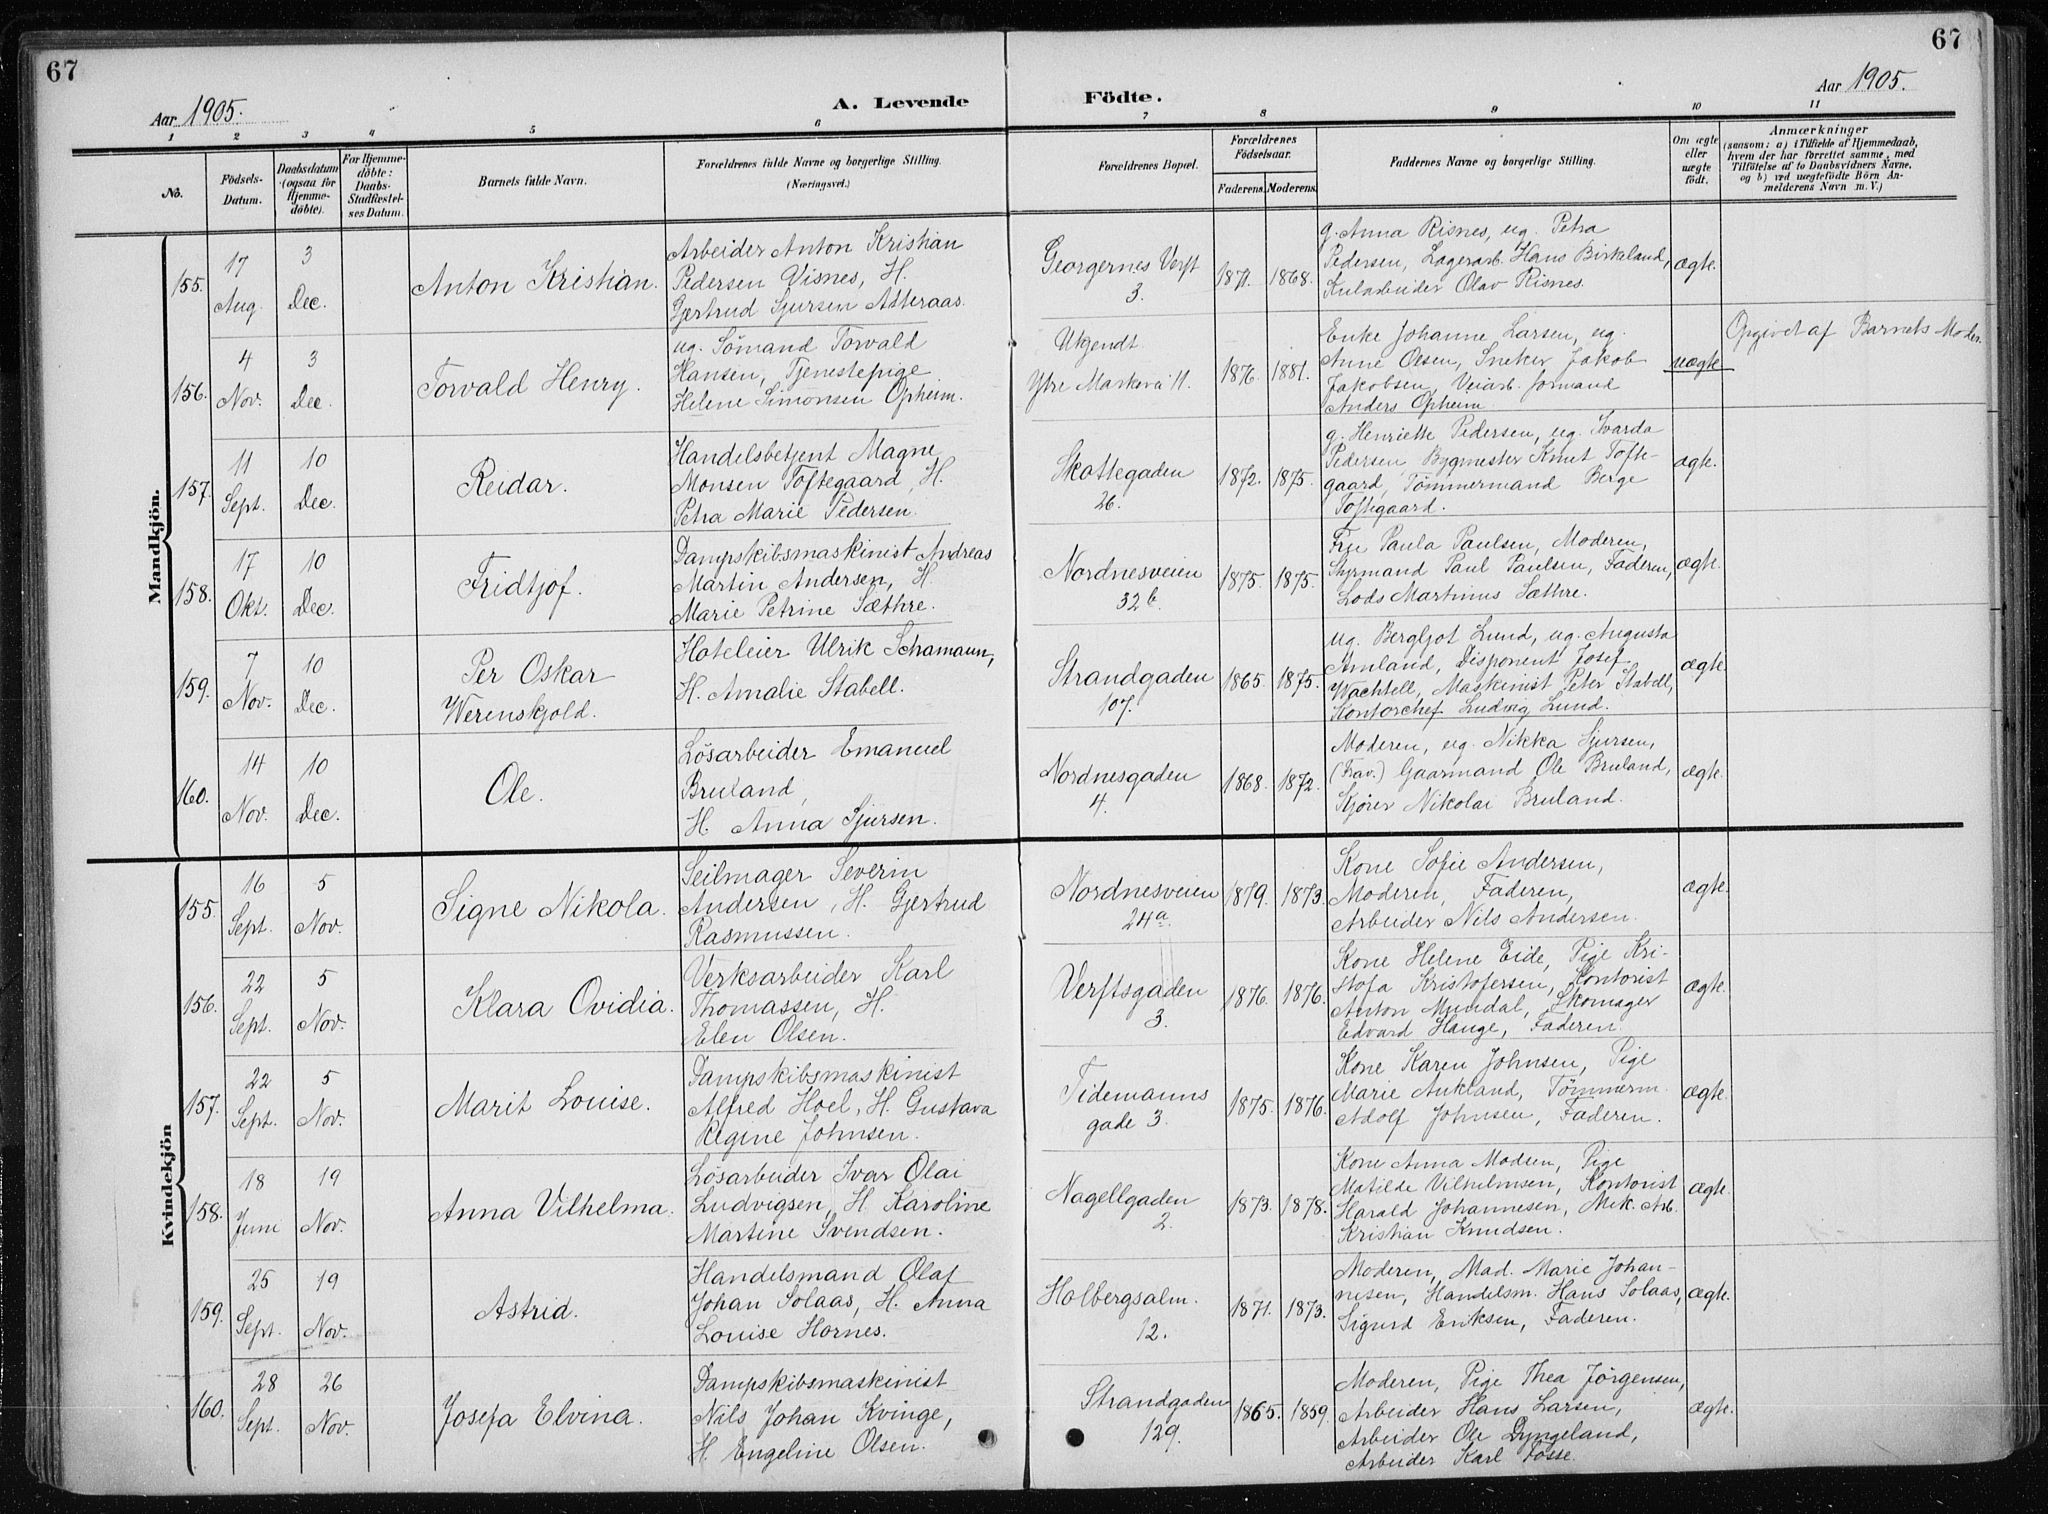 67
67
Aar 1905.
A. Levende
Födte.
Aar 1905.
1 2 3 4 5 6 7 8 9 10 11
No.
Födsels-
Datum.
Daabsdatum
(ogsaa for
Hjemme-
döbte).
For Hjemme-
döbte:
Daabs-
Stadfæstel-
ses Datum.
Barnets fulde Navn.
Forældrenes fulde Navne og borgerlige Stilling.
(Næringsvei.)
Forældrenes Bopæl.
Forældrenes
Födselsaar.
Faderens.
Moderens.
Faddernes Navne og borgerlige Stilling.
Om ægte
eller
uægte
födt.
Anmærkninger
(saasom: a) i Tilfælde af Hjemmedaab,
hvem der har forrettet samme, med
Tilföielse af to Daabsvidners Navne,
og b) ved uægtefödte Börn An-
melderens Navn m. V.)
Mandkjön.
155.
17
Aug.
3
Dec.
Anton Kristian.
Arbeider Anton Kristian
Pedersen Visnes, H.
Gjertrud Sjursen Atteraas.
Georgernes Verft
3.
1871.
1868.
g. Anna Risnes, ug. Petra
Pedersen, Lagerarb. Hans Birkeland,
Kularbeider Olav Risnes.
ægte.
156.
4
Nov.
3
Dec.
Torvald Henry.
ug. Sömand Torvald
Hansen, Tjenestepige
Helene Simonsen Opheim.
Ukjendt
Ytre Markevei 11.
1876.
1881.
Enke Johanne Larsen, ug.
Anne Olsen, Sneker Jakob
Jakobsen, Veiarb. formand
Anders Opheim
uægte
Opgivet af Barnets Moder.
157.
11
Sept.
10
Dec.
Reidar.
Handelsbetjent Magne
Monsen Toftegaard, H.
Petra Marie Pedersen.
Skottegaden
26.
1872.
1875.
g. Henriette Pedersen, ug. Svarda
Pedersen Bygmester Knut Tofte-
gaard, Tömmermand Berge
Toftegaard.
ægte.
158.
17
Okt.
10
Dec.
Fridtjof.
Dampskibsmaskinist Andreas
Martin Andersen, H.
Marie Petrine Sæthre.
Nordnesveien
32b.
1875.
1875.
Fru Paula Paulsen, Moderen,
Styrmand Paul Paulsen, Faderen,
Lods Martinus Sæthre.
ægte.
159.
7
Nov.
10
Dec.
Per Oskar
Werenskjold.
Hoteleier Ulrik Schamaun,
H. Amalie Stabell.
Strandgaden
107.
1865.
1875.
ug. Bergljot Lund, ug. Augusta
Amland, Disponent Josef
Wachtell, Maskinist Peter Stabell,
Kontorchef Ludvig Lund.
ægte.
160.
14
Nov.
10
Dec.
Ole.
Lösarbeider Emanuel
Bruland,
H. Anna Sjursen.
Nordnesgaden
4.
1868.
1872.
Moderen, ug. Nikka Sjursen,
(Frav.) Gaarmand Ole Bruland,
Kjører Nikolai Bruland.
ægte.
Kvindekjön
155.
16
Sept.
5
Nov.
Signe Nikola.
Seilmager Severin
Andersen, H. Gjertrud
Rasmussen.
Nordnesveien
24a.
1879.
1873.
Kone Sofie Andersen,
Moderen, Faderen,
Arbeider Nils Andersen.
ægte.
156.
22
Sept.
5
Nov.
Klara Ovidia.
Verksarbeider Karl
Thomassen, H.
Elen Olsen.
Verftsgaden
3.
1876.
1876.
Kone Helene Eide, Pige Kri-
stofa Kristofersen, Kontorist
Anton Mundal, Skomager
Edvard Hauge, Faderen.
ægte.
157.
22
Sept.
5
Nov.
Marit Louise.
Dampskibsmaskinist
Alfred Hoel, H. Gustava
Regine Johnsen.
Tidemanns
gade 3.
1875.
1876.
Kone Karen Johnsen, Pige
Marie Aukland, Tömmerm.
Adolf Johnsen, Faderen.
ægte.
158.
18
Juni
19
Nov.
Anna Vilhelma.
Lösarbeider Ivar Olai
Ludvigsen, H. Karoline
Martine Svendsen.
Nagellgaden
2.
1873.
1878.
Kone Anna Madsen, Pige
Matilde Vilhelmsen, Kontorist
Harald Johannesen, Mek. Arb.
Kristian Knudsen.
ægte.
159.
25
Sept.
19
Nov.
Astrid.
Handelsmand Olaf
Johan Solaas, H. Anna
Louise Hornes.
Holbergsalm.
12.
1871.
1873.
Moderen, Mad. Marie Johan-
nesen, Handelsm. Hans Solaas,
Sigurd Eriksen, Faderen.
ægte.
160.
28
Sept.
26
Nov.
Josefa Elvina.
Dampskibsmaskinist
Nils Johan Kvinge,
H. Engeline Olsen.
Strandgaden
129.
1865.
1859.
Moderen, Pige Thea Jørgensen,
Arbeider Hans Larsen,
Arbeider Ole Dyngeland,
Arbeider Karl Fosse.
ægte.